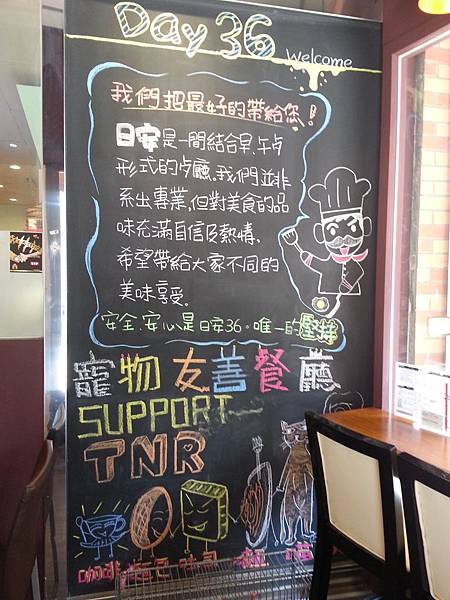 Day 36
Welcome
我們把最好的帶給您!
日安是一間結合早.午卢
形式的卢廰.我們並非
系出專業,但對美食的品
味充滿自信及熱情.
希望帶給大家不同的
美味享受.
安全.安心是日安36。唯一的堅持
寵物友善餐廳
SUPPORT
TNR
咖啡